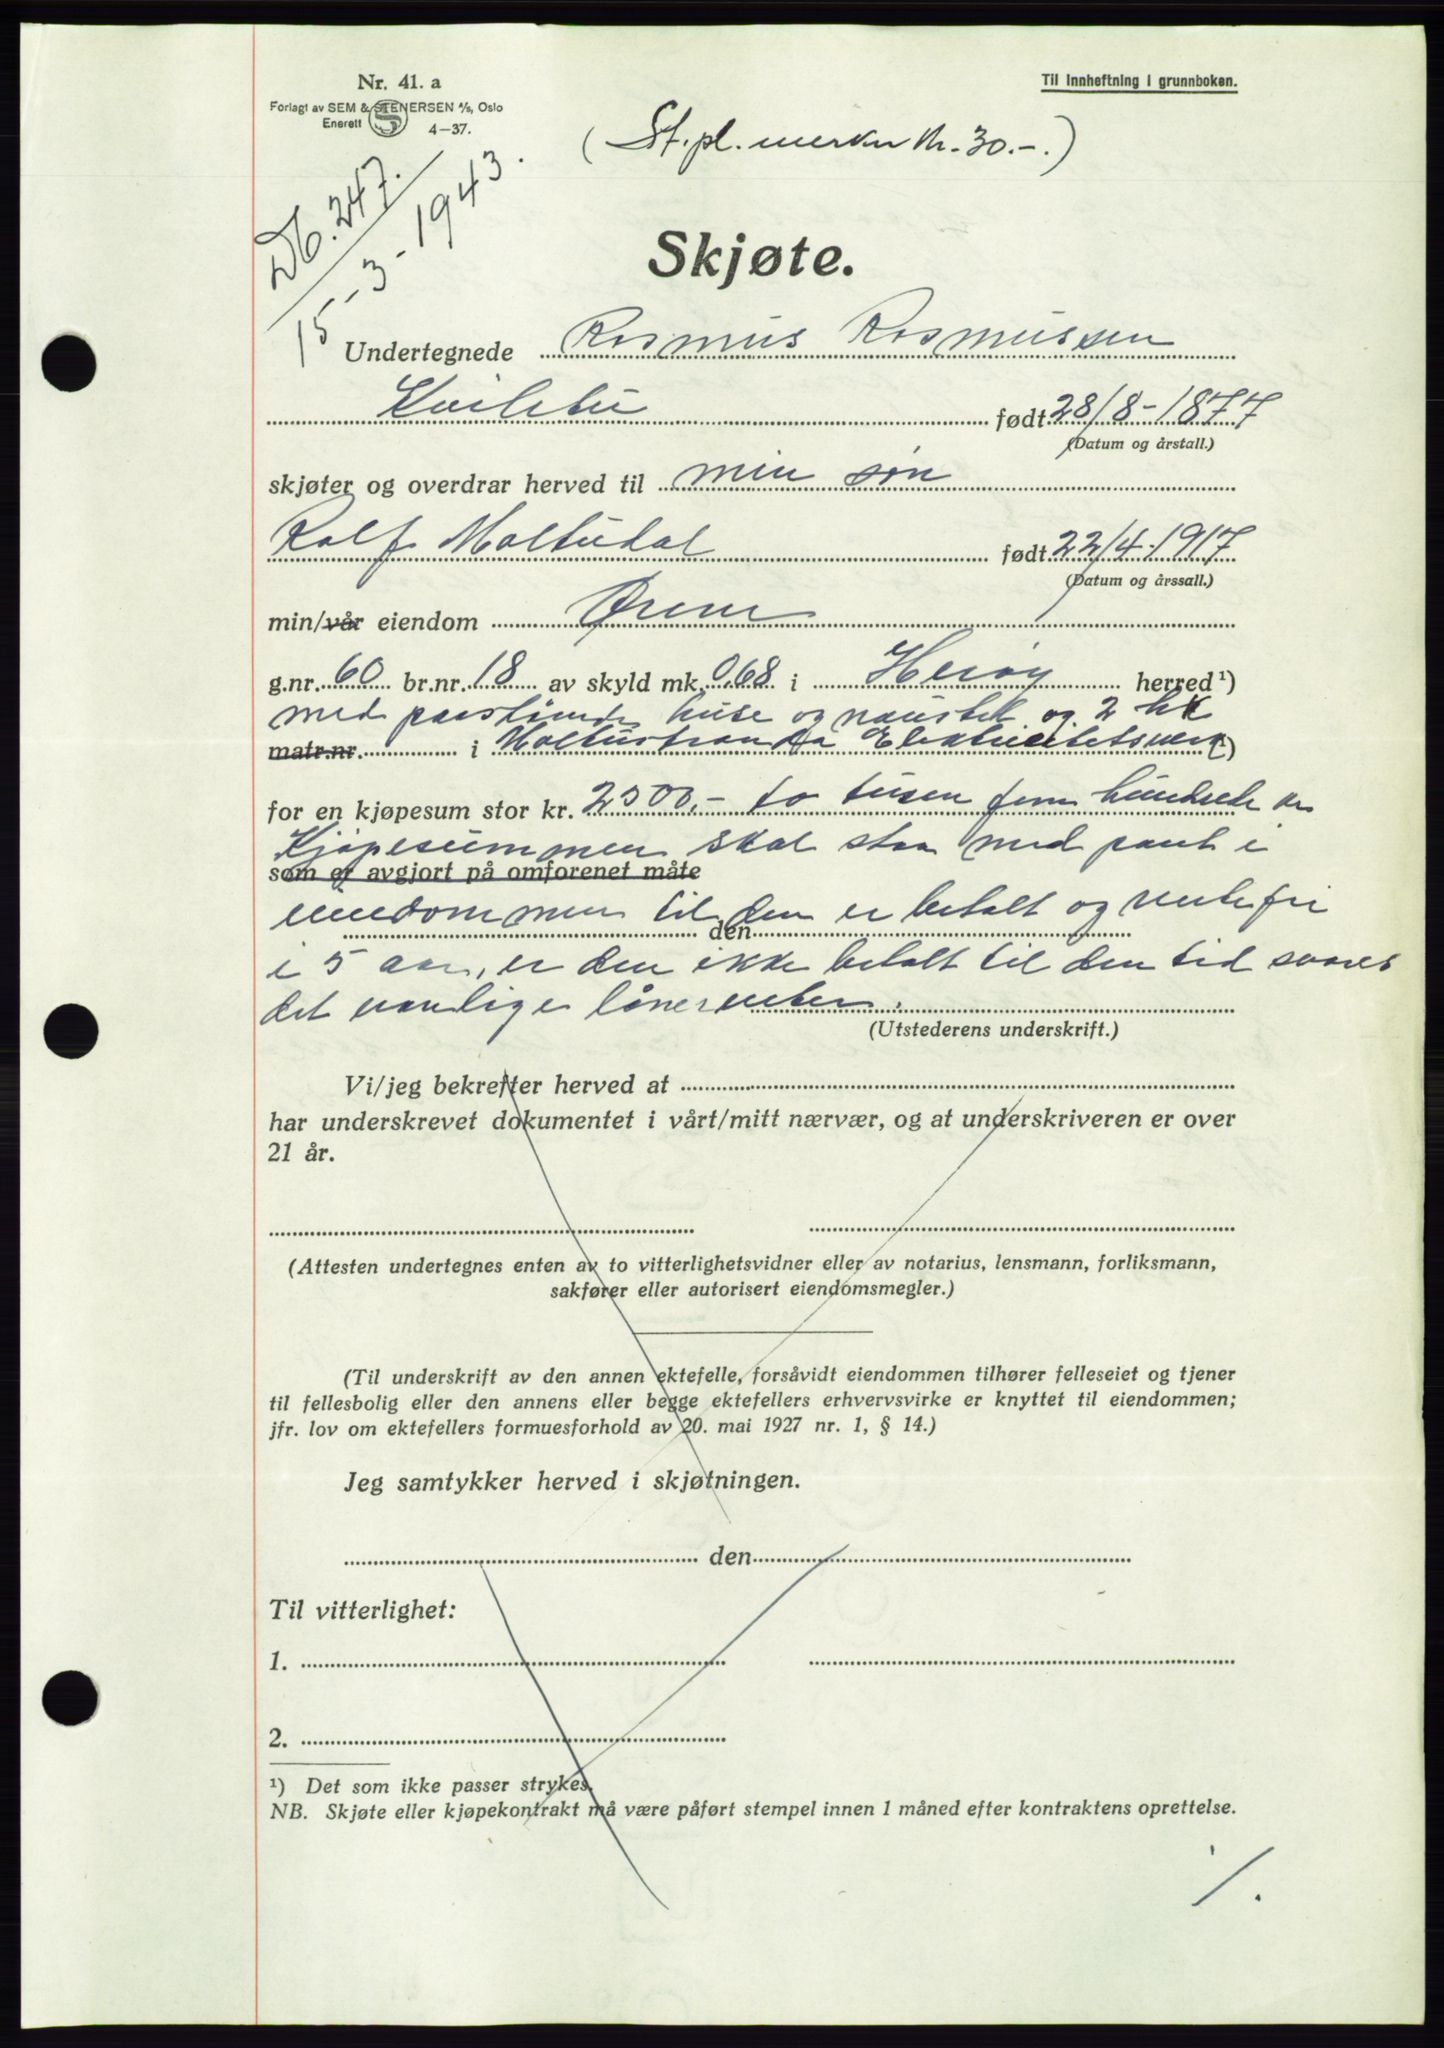 Nr. 41. a
Forlagt av SEM & STENERSEN A/S, Oslo
Enerett 4-37.
Til innheftning i grunnboken.
(St.pl. merker kr. 30.-.)
Db. 247.
15-3-1943.
Skjøte.
Undertegnede Rasmus Rasmussen
født 28/8-1877
(Datum og årstall.)
skjøter og overdrar herved til min søn
Rolf Moltudal født 22/4-1917
(Datum og årssall.)
min/vår eiendom
g.nr. 60 br.nr. 18 av skyld mk. 0,68 i Herøy herred¹)
med paastående huse og naustek og 2 hk
matr.nr. i Moltustranda Elektricitetsverk ¹)
for en kjøpesum stor kr. 2500,- to tusen fem hundrede kr
Kjøpesummen skal staa med pant i
som er avgjort på omforenet måte
eiendommen til den er betalt og rentefri
den
i 5 aar, er den ikke betalt til den tid svares
det vanlige lånerenter.
(Utstederens underskrift.)
Vi/jeg bekrefter herved at
har underskrevet dokumentet i vårt/mitt nærvær, og at underskriveren er over
21 år.
(Attesten undertegnes enten av to vitterlighetsvidner eller av notarius, lensmann, forliksmann,
sakfører eller autorisert eiendomsmegler.)
(Til underskrift av den annen ektefelle, forsåvidt eiendommen tilhører felleseiet og tjener
til fellesbolig eller den annens eller begge ektefellers erhvervsvirke er knyttet til eiendommen;
jfr. lov om ektefellers formuesforhold av 20. mai 1927 nr. 1, § 14.)
Jeg samtykker herved i skjøtningen.
den
Til vitterlighet:
1.
2.
¹) Det som ikke passer strykes.
NB. Skjøte eller kjøpekontrakt må være påført stempel innen 1 måned efter kontraktens oprettelse.
/.